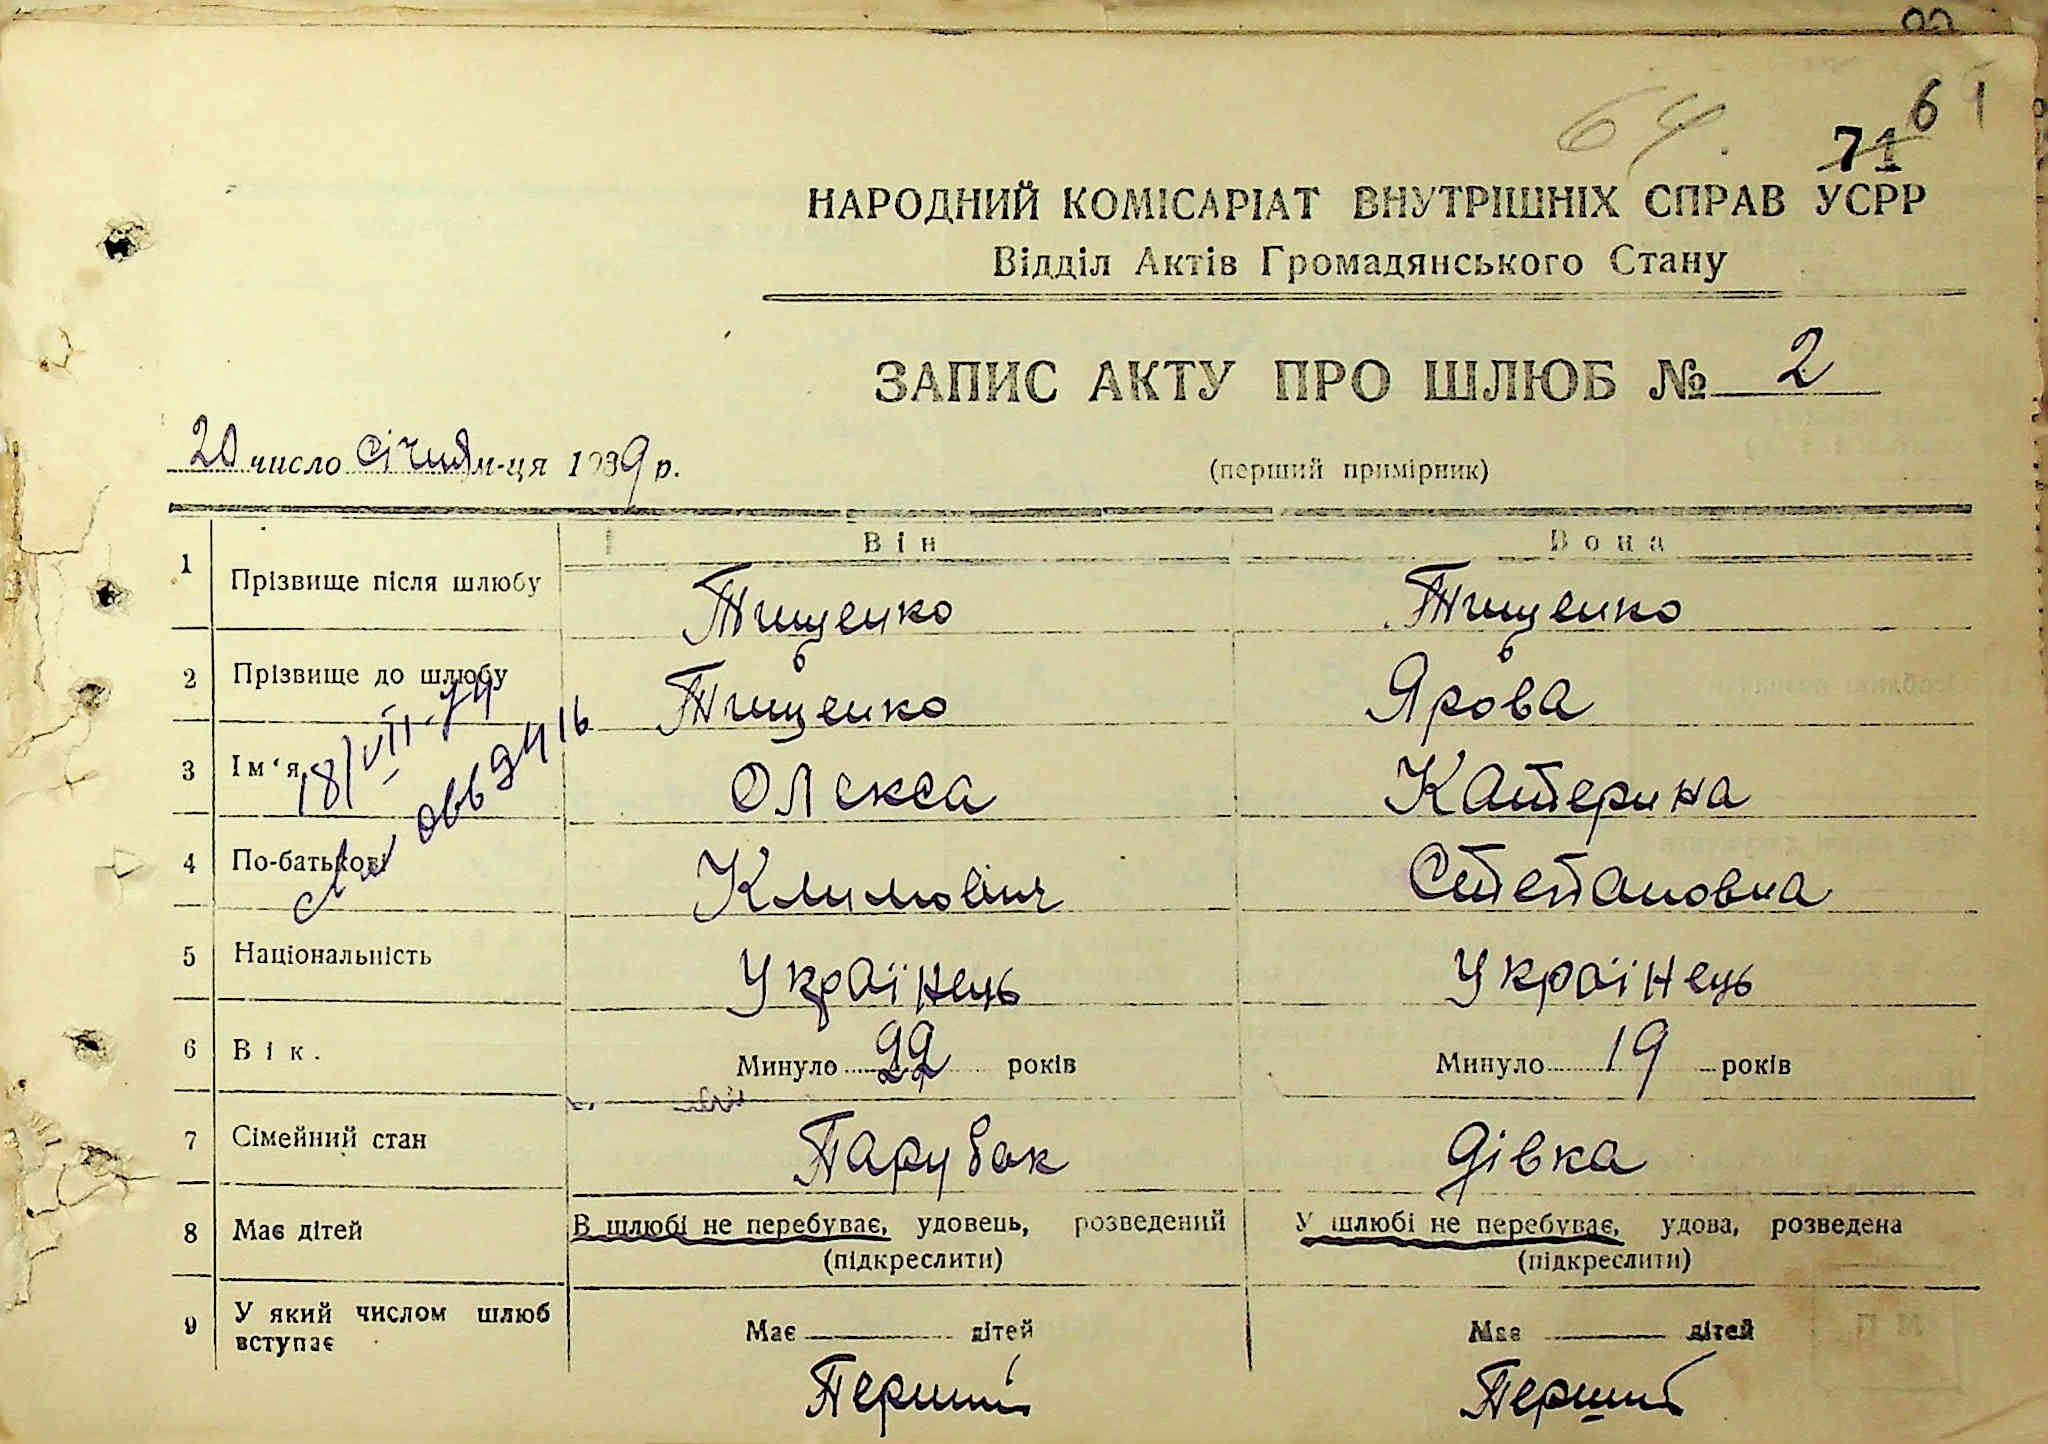 64.
71 61
НАРОДНИЙ КОМІСАРІАТ ВНУТРІШНІХ СПРАВ УСРР
Відділ Актів Громадянського Стану
ЗАПИС АКТУ ПРО ШЛЮБ № 2
20 число січня м-ця 1939 р. (перший примірник)
Він Вона
1 Прізвище після шлюбу Тищенко Тищенко
2 Прізвище до шлюбу Тищенко Ярова
3 Ім'я Олекса Катерина
4 По-батькові Климович Степановна
5 Національність Українець Українець
6 Вік. Минуло 22 років Минуло 19 років
7 Сімейний стан Парубок Дівка
8 Має дітей В шлюбі не перебуває, удовець, розведений У шлюбі не перебуває, удова, розведена
(підкреслити) (підкреслити)
9 У який числом шлюб вступає Має дітей Має дітей
Перший Перший
18/VII-74